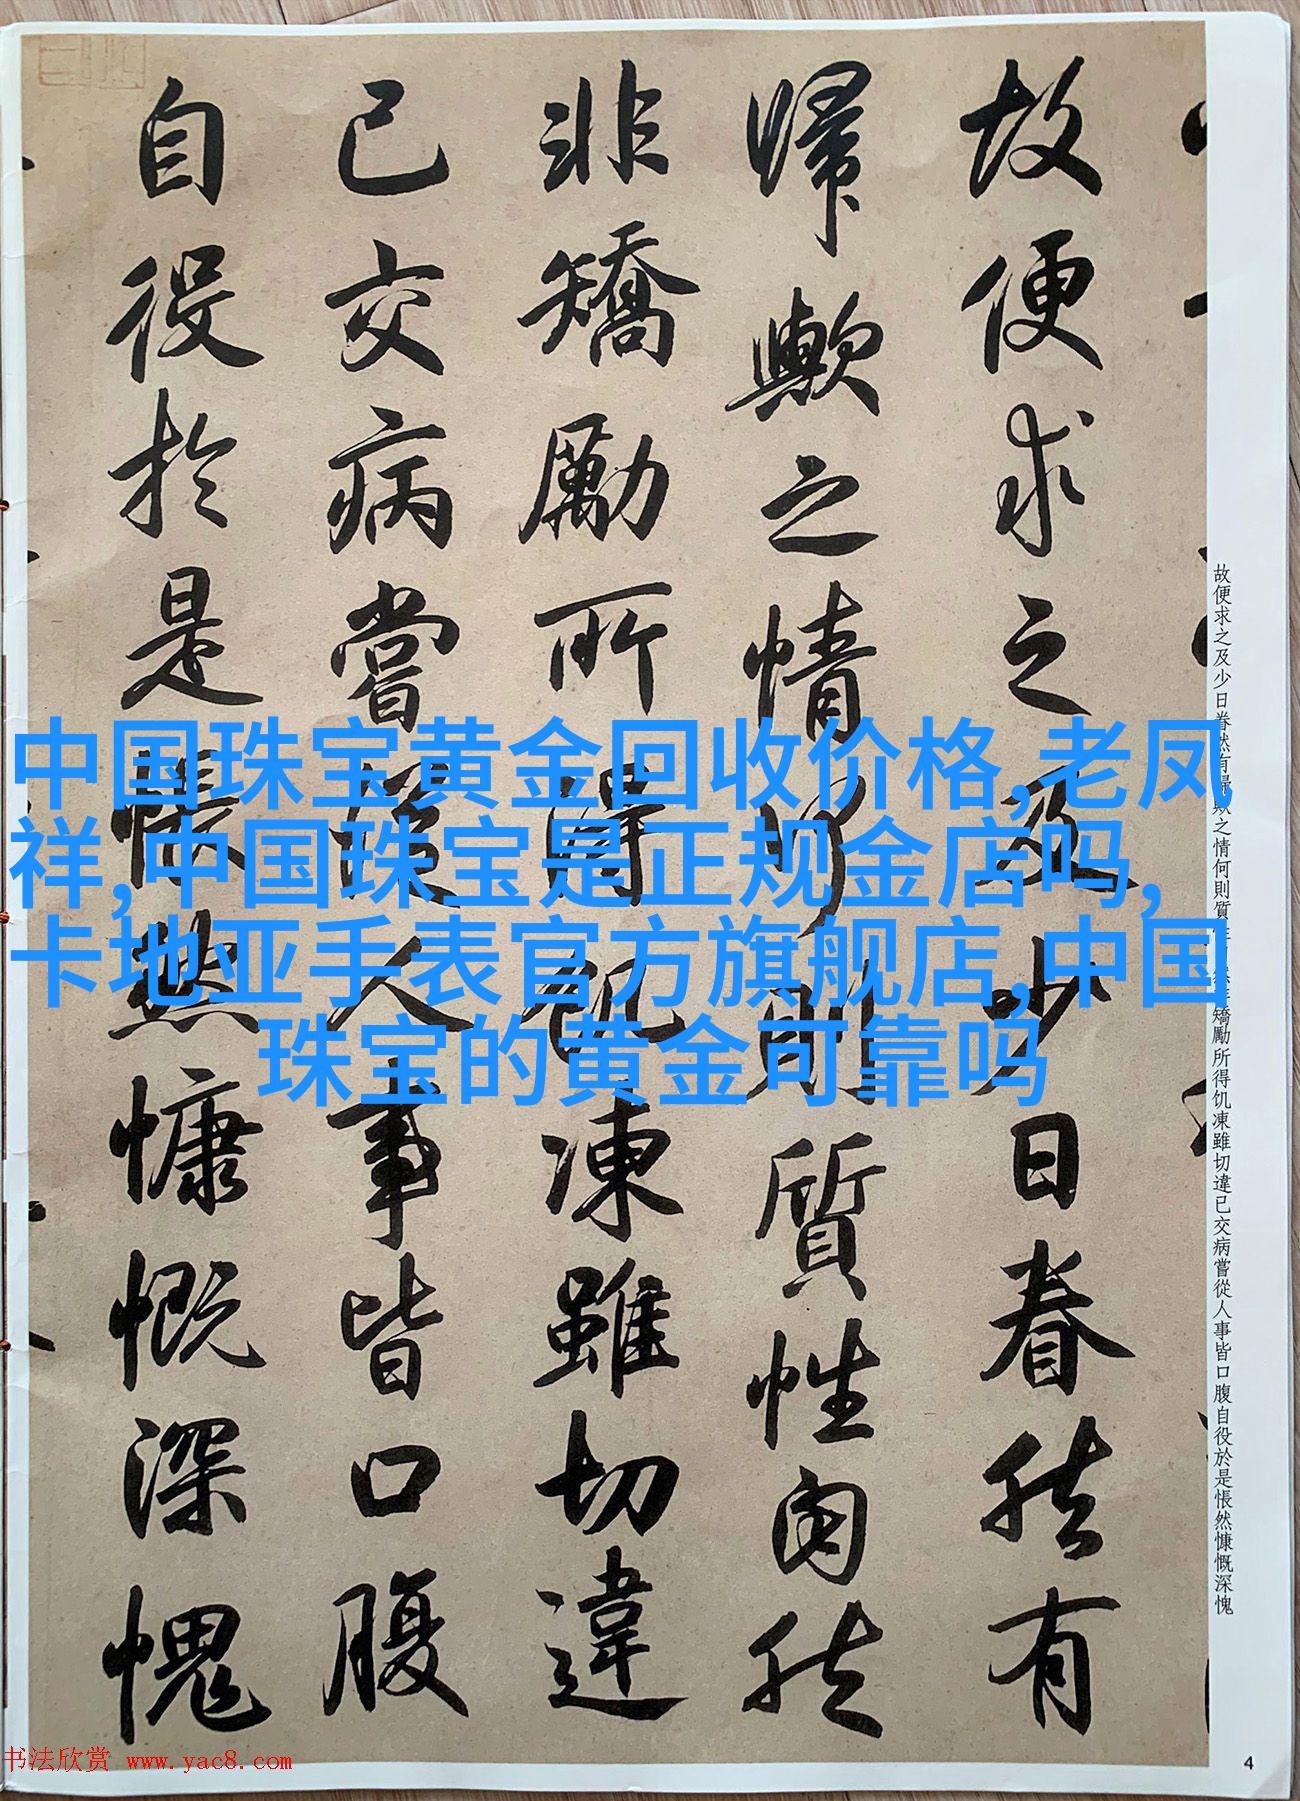 故便求之及少日眷然有
歸歟之情何則質性自然
非矯勵所得飢凍雖切違
已交病嘗從人事皆口腹
自役於是悵然慷慨深愧
中国珠宝黄金回收价格,老凤
祥,中国珠宝是正规金店吗,
卡地亚手表官方旗舰店,中国
珠宝的黄金可靠吗
故便求之及少日眷然有歸歟之情何則質性自然非矯勵所得饥凍雖切違已交病嘗從人事皆口腹自役於是悵然慷慨深愧
书法欣赏 www.yac8.com
4